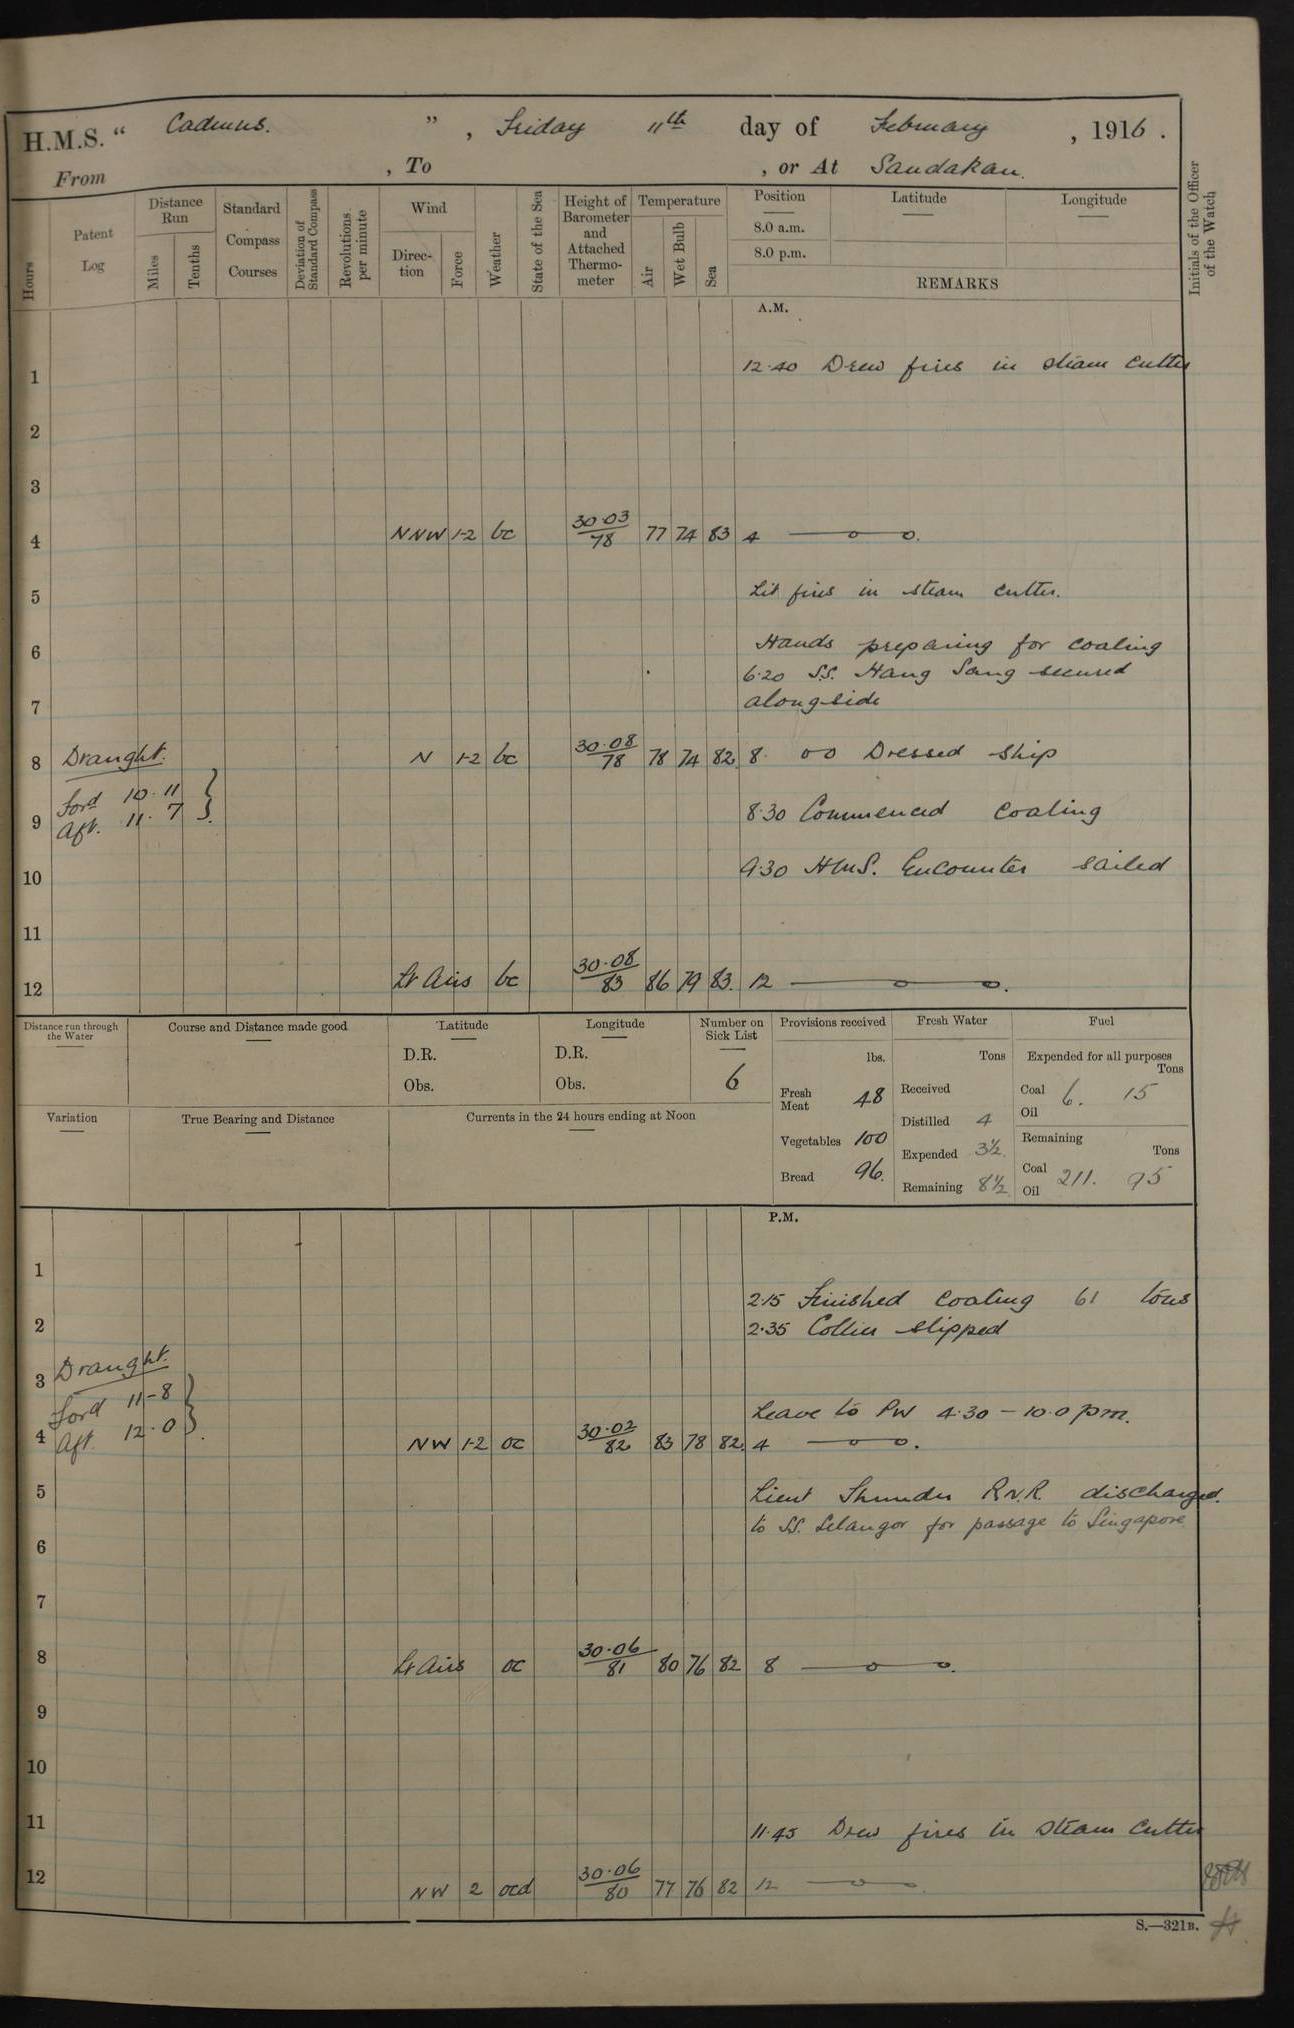 H.M.S. " Cadmus. ", Friday 11th day of February, 1916.
From , To , or At Sandakan.
Hours
Patent Log
Distance Run
Miles
Tenths
Standard Compass Courses
Deviation of Standard Compass
Revolutions per minute
Wind
Direction
Force
Weather
State of the Sea
Height of Barometer and Attached Thermometer
Temperature
Air
Wet Bulb
Sea
Position
8.0 a.m.
8.0 p.m.
Latitude
Longitude
REMARKS
Initials of the Officer of the Watch
A.M.
1 12.40 Drew fires in steam cutter
2
3
4 NNW 1-2 bc 30.03 78 77 74 83 4
5 Lit fires in steam cutter.
6 Hands preparing for coaling
6.20 S.S. Hang Sang secured
7 alongside
8 Draught. N 1-2 bc 30.08 78 78 74 82 8. 00 Dressed ship
Ford 10.11
9 Aft. 11.7 8.30 Commenced coaling
10 9.30 H.M.S. Encounter sailed
11
12 Lt Airs bc 30.08 83 86 79 83. 12
Distance run through the Water
Course and Distance made good
Latitude
D.R.
Obs.
Longitude
D.R.
Obs.
Number on Sick List
6
Provisions received
lbs.
Fresh Meat 48
Vegetables 100
Bread 96.
Fresh Water
Tons
Received
Distilled 4
Expended 3½
Remaining 8½
Fuel
Expended for all purposes
Tons
Coal 6. 15
Oil
Remaining
Tons
Coal 211. 95
Oil
Variation
True Bearing and Distance
Currents in the 24 hours ending at Noon
P.M.
1
2.15 Finished coaling 61 tons
2 2.35 Collier slipped
3 Draught.
Ford 11-8 Leave to PW 4.30 - 10.0 pm.
4 Aft. 12.0 NW 1-2 oc 30.02 82 83 78 82 4
5 Lieut R.N.R. discharged.
to S.S. Selangor for passage to Singapore
6
7
8 Lt Airs oc 30.06 81 80 76 82 8
9
10
11 11.45 Drew fires in steam cutter
12 NW 2 ocd 30.06 80 77 76 82 12
S.—321B.